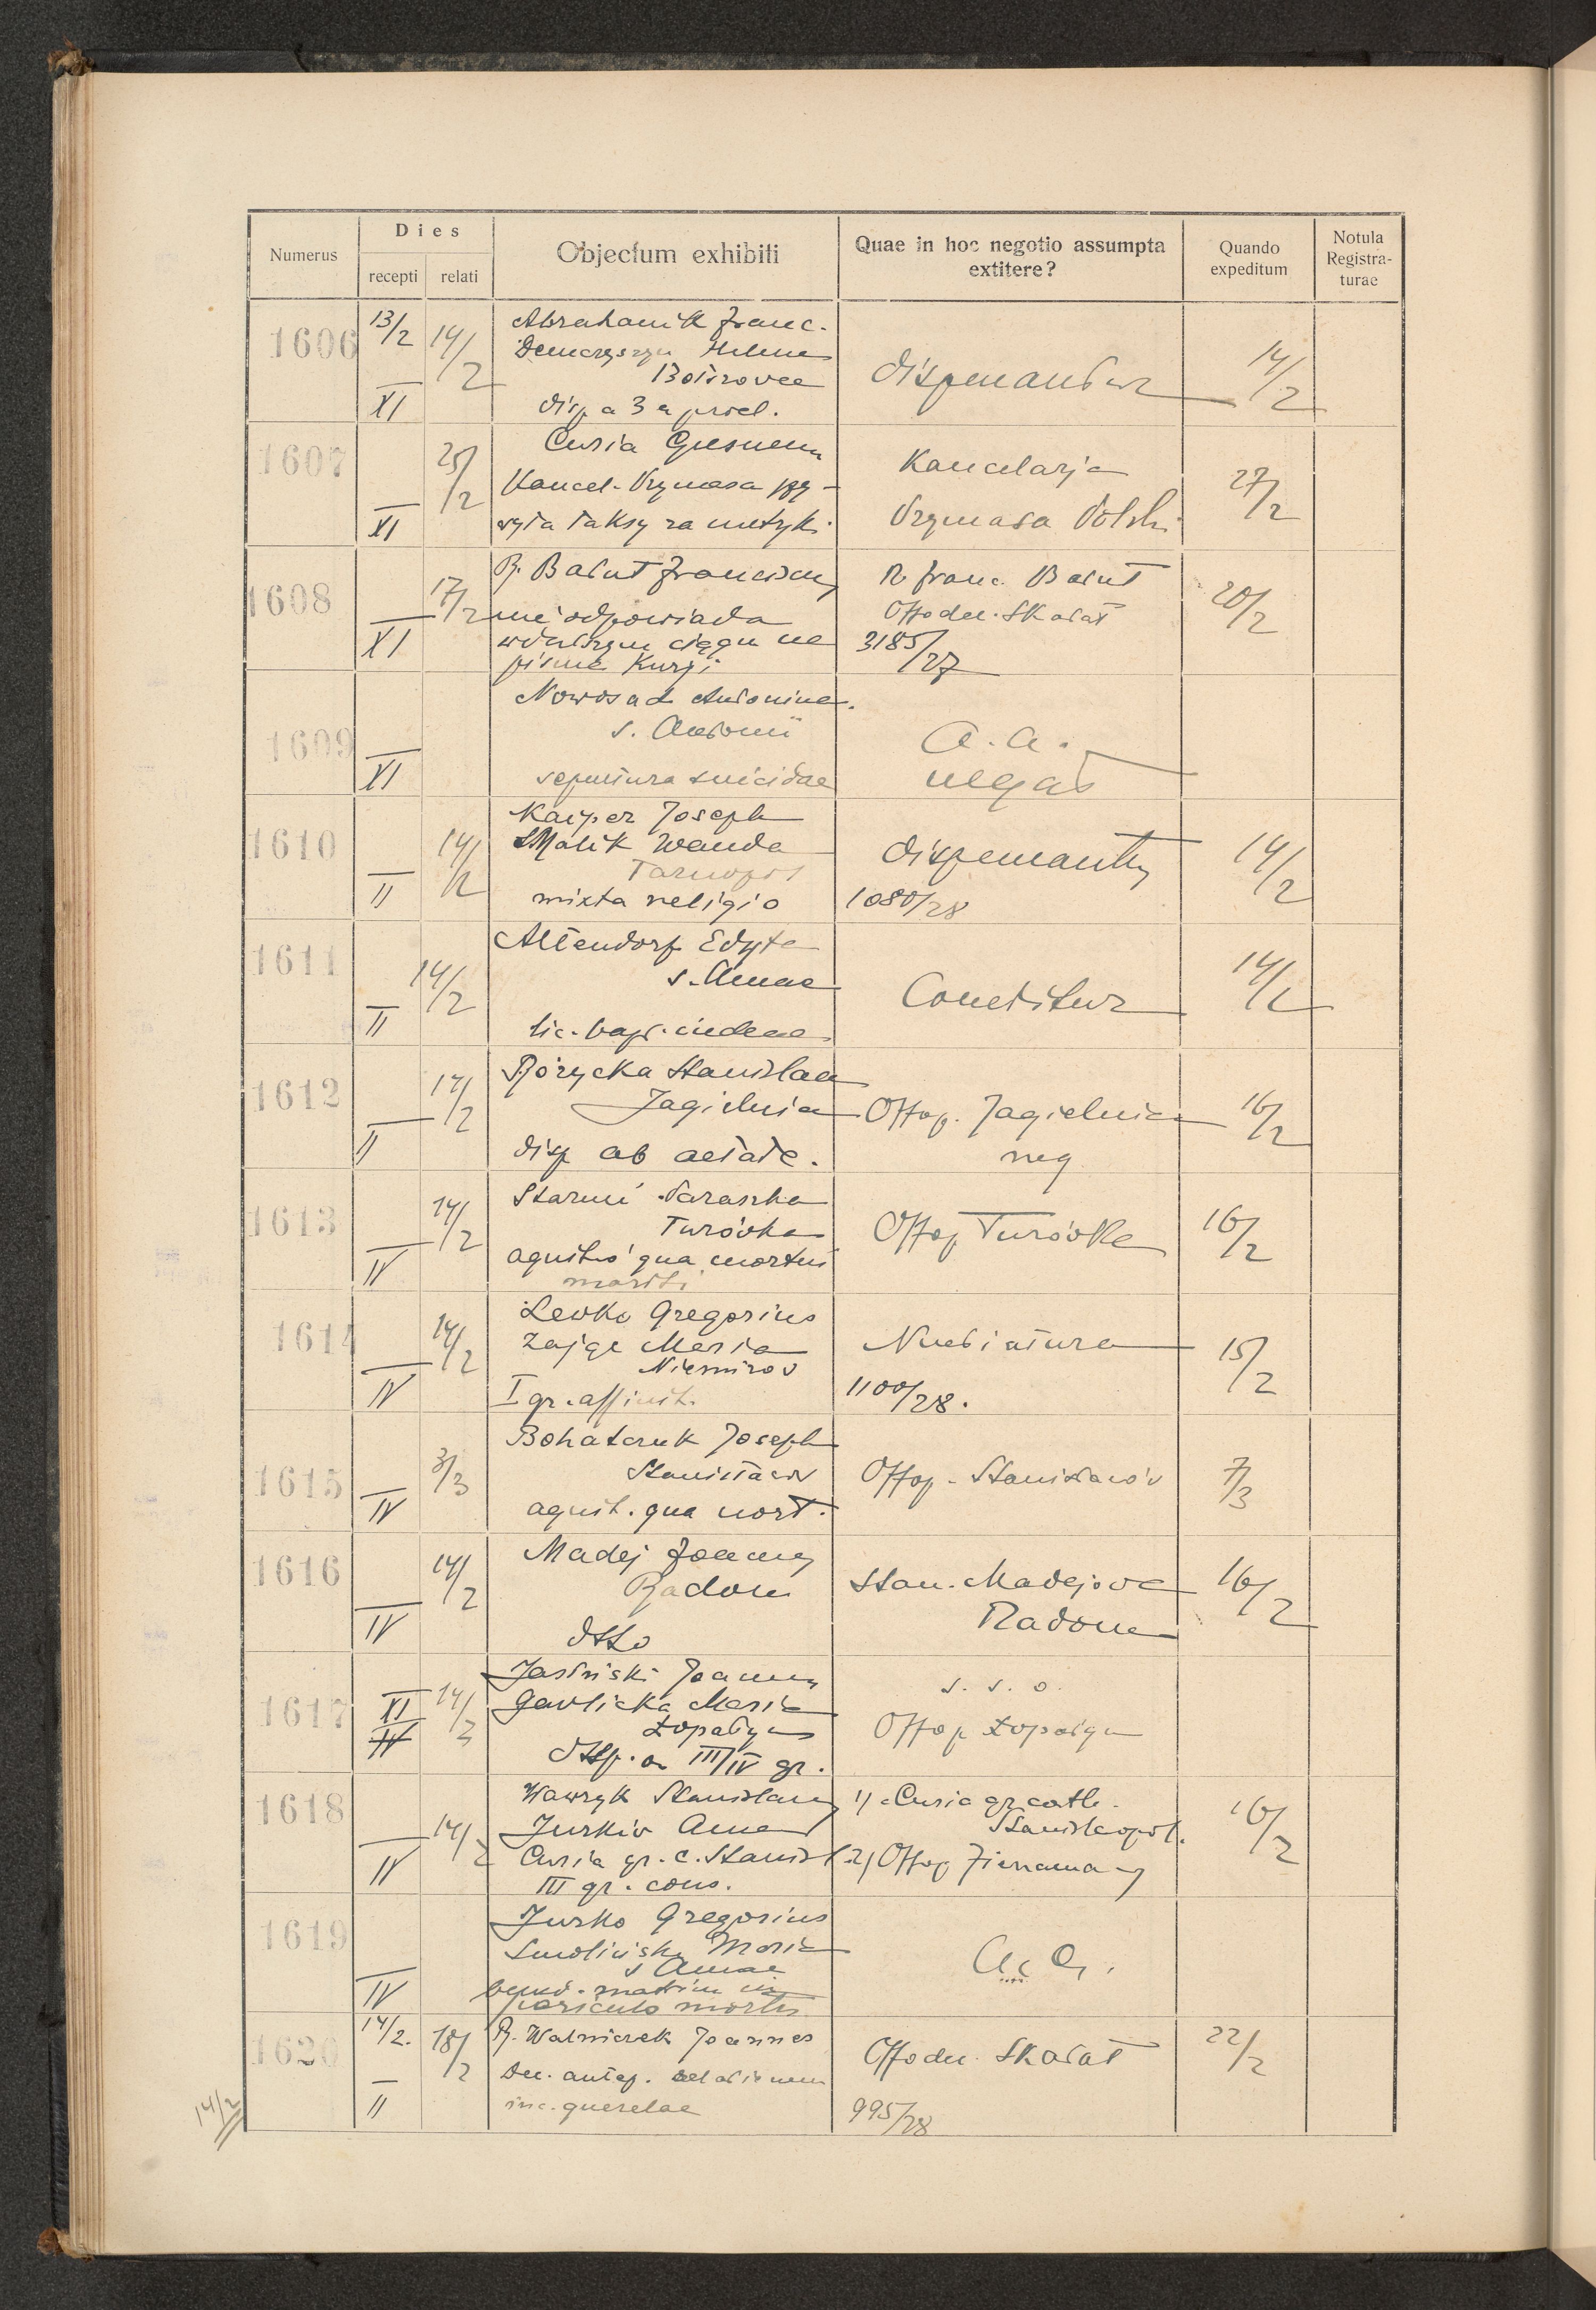 Dies
Numerus
recepti
relati
Objectum exhibiti
Quae in hoc negotio assumpta
extitere?
Quando
expeditum
Notula
Registra-
turae
1606
13/2
14/2
XI
Abrahamik Franc.
Helena
disp a 3 a procl.
14/2
1607
25/2
XI
Curia Gnesnen
Kancel. Prymasa
taksy za metryki
Kancelarja
Prymasa Polski
27/2
1608
17/2
XI
nie odpowiada
ciągu na
pismo Kurji
R. Franc. Bałut
Offo dec. Skałat
3185/27
20/2
1609
XI
Nowosad Antonina
s. Antonii
sepultura suicidae
a. a.
negat
1610
14/2
II
Kasper Joseph
Malik Wanda
Tarnopol
mixta religio
dispensantur
1080/28
14/2
1611
14/2
II
Altendorf Edyta
s. Annae
lic. bapt. iudeae
Conceditur
14/2
1612
14/2
II
Różycka Stanislaa
Jagielnica
disp ab aetate.
Offop. Jagielnica
neg
16/2
1613
14/2
IV
Paraska
Turówka
agnitio qua mortui
mariti
Offop Turówka
16/2
1614
14/2
IV
Levko Gregorius
Zając Maria
Niemirov
I gr. affinit.
Nuntiatura
1100/28.
15/2
1615
3/3
IV
Bohatcruk Joseph
Stanisławów
agnit. qua mort.
Offop. Stanisławów
7/3
1616
14/2
IV
Madej Joannes
Radom
dtto
Stan. Madejova
Radom
16/2
1617
XI
IV
14/2
Jasiński Joannes
Gavlicka Maria
Łopatyn
disp. a III/IV gr.
s. s. o.
Offop Łopatyn
1618
14/2
IV
Wawryk Stanislaus
Jurkiv Anna
Curia gr. c. Stanisl.
III gr. cons.
1) Curia gr. cath.
Stanislaopol.
2)Offop
16/2
1619
IV
Jurko Gregorius
Maria
s Annae
bened. matrim in
periculo mortis
a. a.
1620
14/2.
18/2
II
R. Walniczek Joannes
Dec. antep. relationem
inc. querelae
Offo dec. Skałat
995/28
22/2
14/2